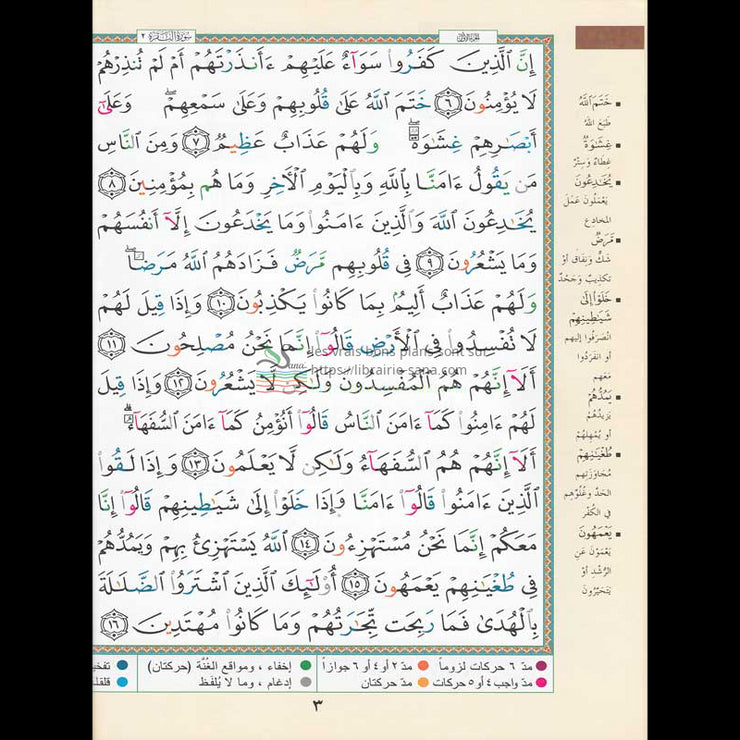 سورة البقرة ٢
الجزء الأول
إِنَّ ٱلَّذِينَ كَفَرُوا۟ سَوَآءٌ عَلَيْهِمْ ءَأَنذَرْتَهُمْ أَمْ لَمْ تُنذِرْهُمْ
لَا يُؤْمِنُونَ ٦ خَتَمَ ٱللَّهُ عَلَىٰ قُلُوبِهِمْ وَعَلَىٰ سَمْعِهِمْ ۖ وَعَلَىٰٓ
أَبْصَٰرِهِمْ غِشَٰوَةٌ ۖ وَلَهُمْ عَذَابٌ عَظِيمٌ ٧ وَمِنَ ٱلنَّاسِ
مَن يَقُولُ ءَامَنَّا بِٱللَّهِ وَبِٱلْيَوْمِ ٱلْءَاخِرِ وَمَا هُم بِمُؤْمِنِينَ ٨
يُخَٰدِعُونَ ٱللَّهَ وَٱلَّذِينَ ءَامَنُوا۟ وَمَا يَخْدَعُونَ إِلَّآ أَنفُسَهُمْ
وَمَا يَشْعُرُونَ ٩ فِى قُلُوبِهِم مَّرَضٌ فَزَادَهُمُ ٱللَّهُ مَرَضًا ۖ
وَلَهُمْ عَذَابٌ أَلِيمٌۢ بِمَا كَانُوا۟ يَكْذِبُونَ ١٠ وَإِذَا قِيلَ لَهُمْ
لَا تُفْسِدُوا۟ فِى ٱلْأَرْضِ قَالُوٓا۟ إِنَّمَا نَحْنُ مُصْلِحُونَ ١١
أَلَآ إِنَّهُمْ هُمُ ٱلْمُفْسِدُونَ وَلَٰكِن لَّا يَشْعُرُونَ ١٢ وَإِذَا قِيلَ
لَهُمْ ءَامِنُوا۟ كَمَآ ءَامَنَ ٱلنَّاسُ قَالُوٓا۟ أَنُؤْمِنُ كَمَآ ءَامَنَ ٱلسُّفَهَآءُ ۗ
أَلَآ إِنَّهُمْ هُمُ ٱلسُّفَهَآءُ وَلَٰكِن لَّا يَعْلَمُونَ ١٣ وَإِذَا لَقُوا۟
ٱلَّذِينَ ءَامَنُوا۟ قَالُوٓا۟ ءَامَنَّا وَإِذَا خَلَوْا۟ إِلَىٰ شَيَٰطِينِهِمْ قَالُوٓا۟ إِنَّا
مَعَكُمْ إِنَّمَا نَحْنُ مُسْتَهْزِءُونَ ١٤ ٱللَّهُ يَسْتَهْزِئُ بِهِمْ وَيَمُدُّهُمْ
فِى طُغْيَٰنِهِمْ يَعْمَهُونَ ١٥ أُو۟لَٰٓئِكَ ٱلَّذِينَ ٱشْتَرَوُا۟ ٱلضَّلَٰلَةَ
بِٱلْهُدَىٰ فَمَا رَبِحَت تِّجَٰرَتُهُمْ وَمَا كَانُوا۟ مُهْتَدِينَ ١٦
خَتَمَ اللهُ
طَبَعَ اللهُ
غِشَاوَةٌ
غِطَاءٌ وَسِتْرٌ
يُخَادِعُونَ
يَعْمَلُونَ عَمَلَ
المخادع
مَرَضٌ
شَكٌّ ونِفاق أو
تكذيبٌ وَجَحْدٌ
خَلَوْا إِلَى
شَيَاطِينِهِمْ
انْصَرَفُوا إليهم
أو انفردوا
معهم
يَمُدُّهُمْ
يَزيدُهُمْ
أو يُمْهِلُهُمْ
طُغْيَانِهِمْ
مُجَاوَزَتِهم
الحدَّ وغُلُوِّهِم
في الكُفْر
يَعْمَهُونَ
يَعْمَوْنَ عَنِ
الرُّشْدِ أوْ
يَتَحَيَّرُونَ
Sana
les vrais bons plans sont sur
https://librairie-sana.com
مدّ ٦ حركات لزوماً
مدّ ٢ أو ٤ أو ٦ جوازاً
إخفاء ، ومواقع الغُنَّة (حركتان)
مدّ واجب ٤ أو ٥ حركات
مدّ حركتان
إدغام ، وما لا يُلفَظ
٣